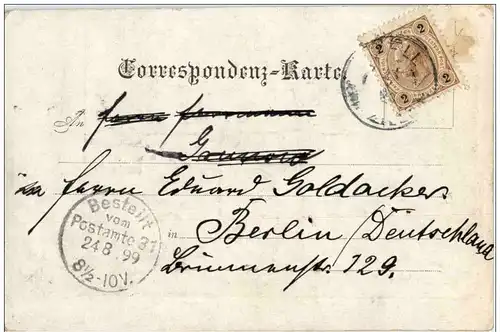 2 2
2 2
Correspondenz-Karte
An
Herrn Eduard Goldacker
Bestellt
vom
Postamte 31
24 8 99
8½-10V.
in Berlin/Deutschland
Brunnenstr. 129.